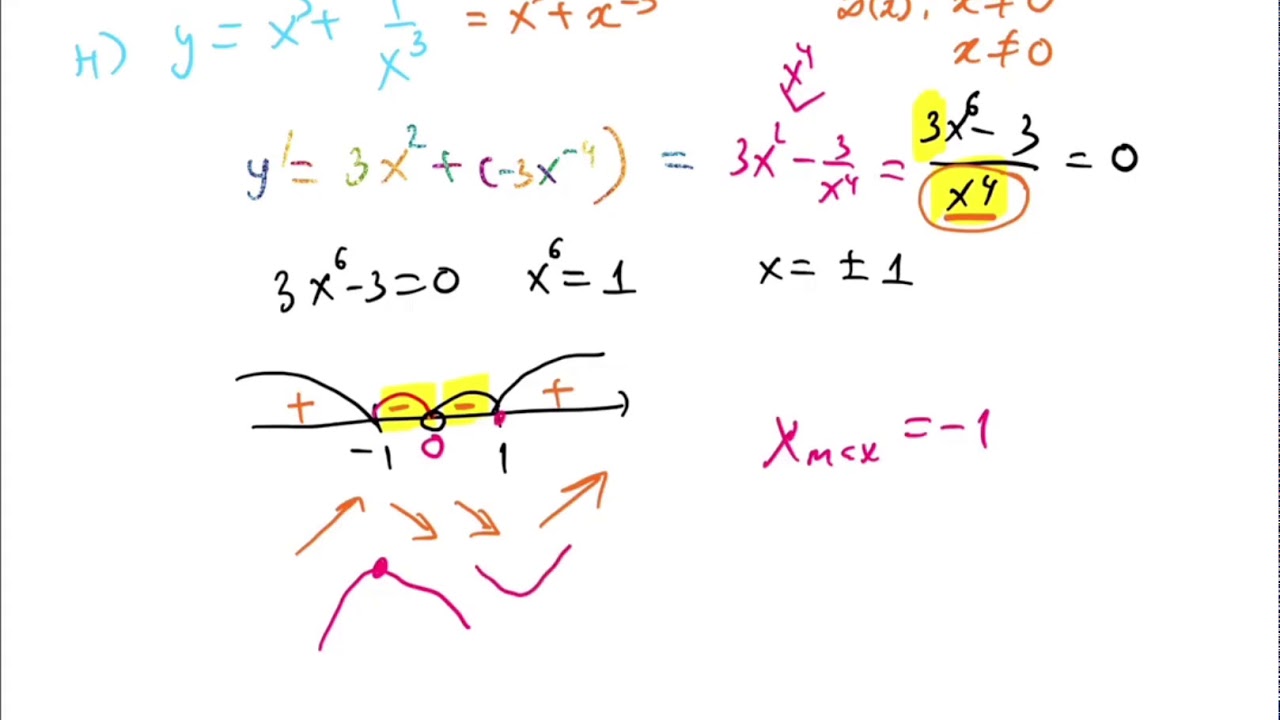 н) y = x³ + 1/x³ = x³ + x⁻³ D(x): x ≠ 0
x ≠ 0
x⁴
y' = 3x² + (-3x⁻⁴) = 3x² - 3/x⁴ = (3x⁶ - 3)/x⁴ = 0
3x⁶-3=0 x⁶=1 x=±1
+ - - +
-1 0 1
x max = -1